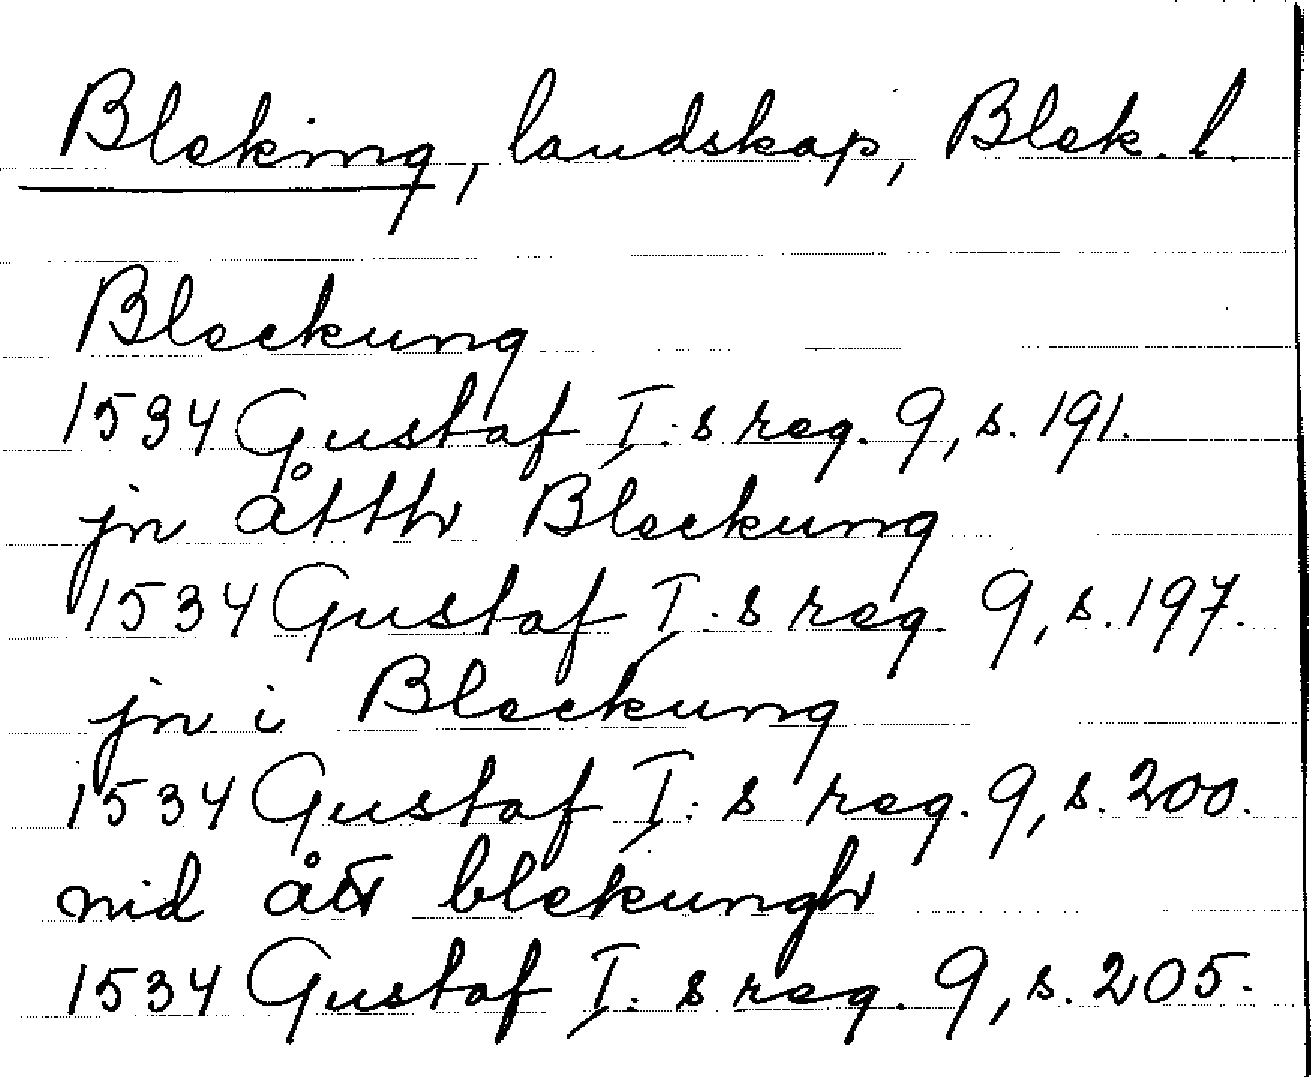 Bleking, landskap, Blek. l.
Bleckung
1534 Gustaf I:s reg. 9, s. 191.
jn åtth Bleckung
1534 Gustaf I:s reg. 9, s. 197.
jn i Bleckung
1534 Gustaf I:s reg. 9, s. 200.
nid blekungh
1534 Gustaf I:s reg. 9, s. 205.